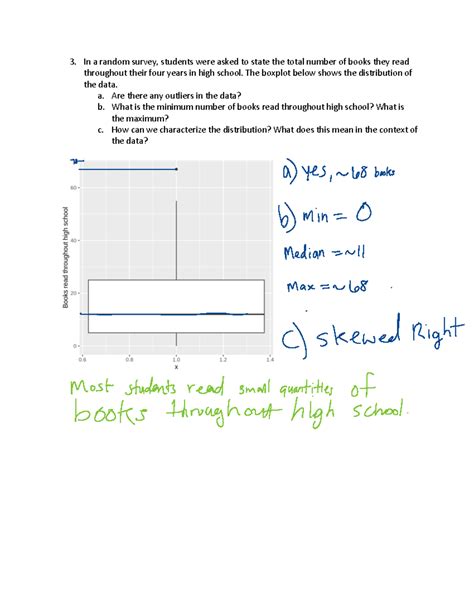 3. In a random survey, students were asked to state the total number of books they read
throughout their four years in high school. The boxplot below shows the distribution of
the data.
a. Are there any outliers in the data?
b. What is the minimum number of books read throughout high school? What is
the maximum?
c. How can we characterize the distribution? What does this mean in the context of
the data?
a) yes, ~68 books
60
b) min = 0
Books read throughout high school
40
Median = ~11
Max = ~68
20
c) skewed Right
0
0.6 0.8 1.0 1.2 1.4
x
Most students read small quantities of
books throughout high school.